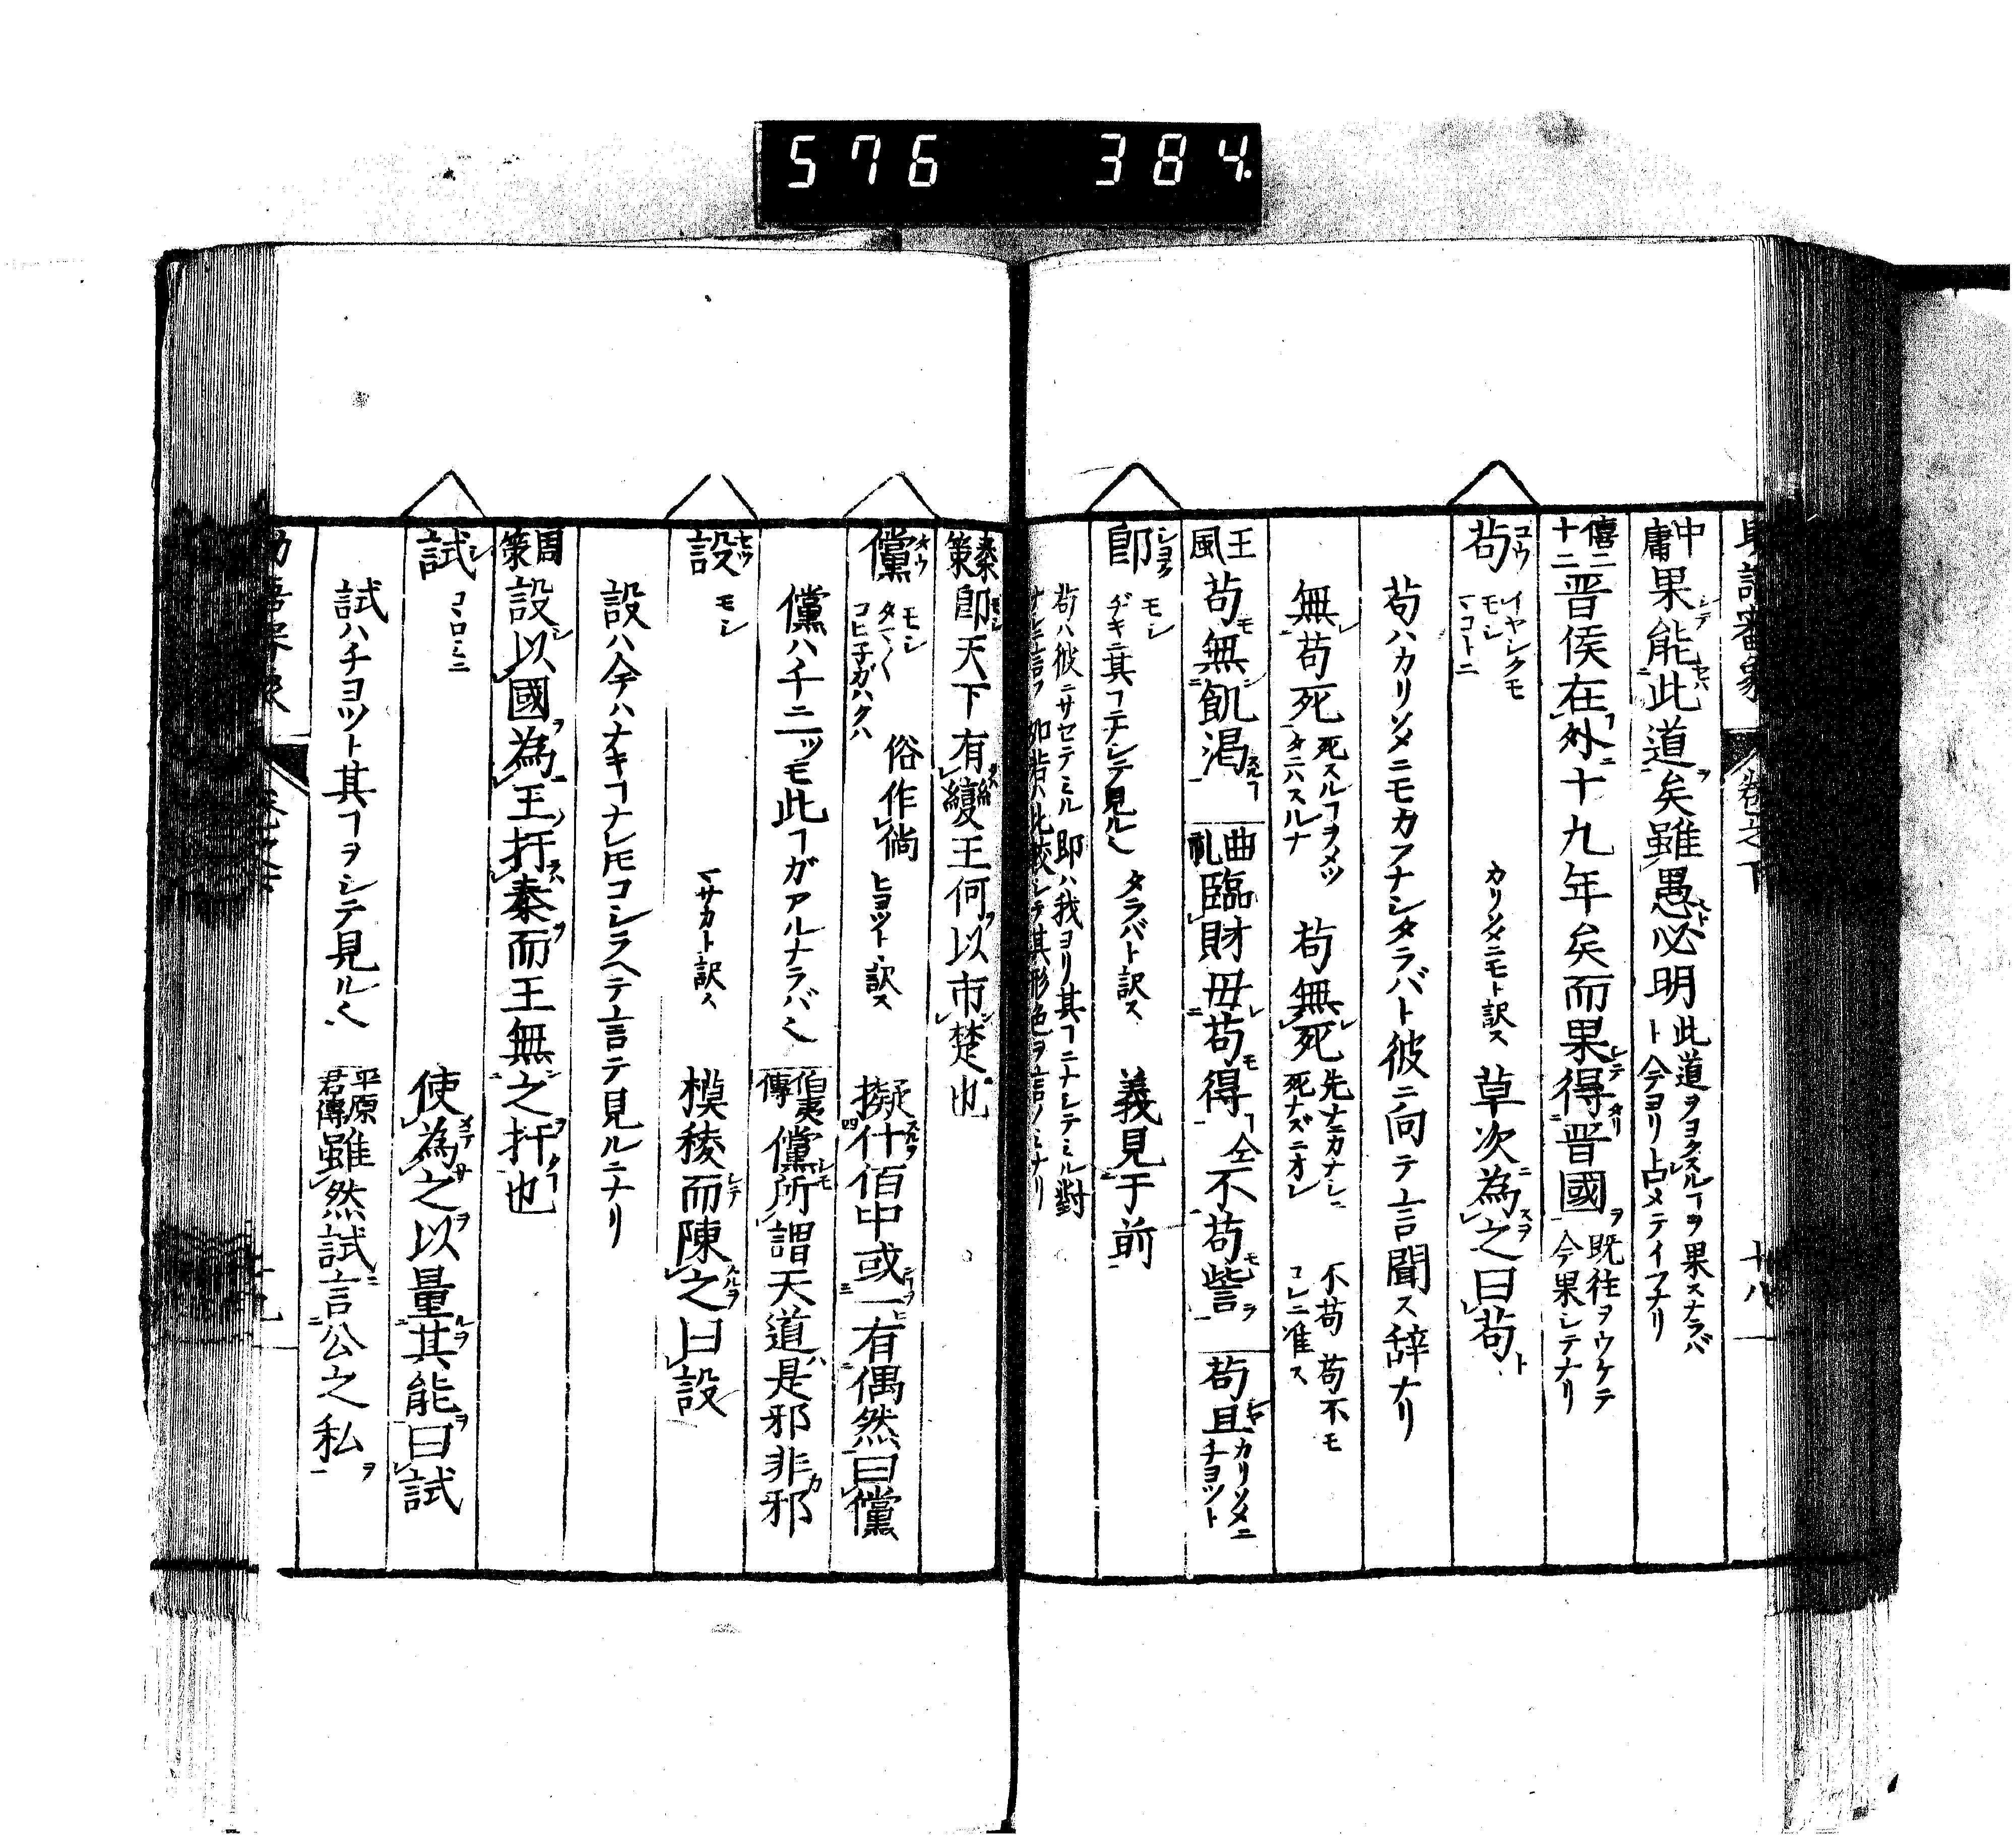 576 384.
中庸 果能此道矣雖愚必明 此道ヲヨクスルヿヲ果スナラバト今ヨリ占メテイフナリ
僖二十二 晋侯在外十九年矣而果得晋國 既往ヲウケテ今果シテナリ
苟 コウ イヤシクモ モシ マコトニ カリソメニモト訳ス 草次為之曰苟
苟ハカリソメニモカフナシタラバト彼ニ向テ言聞ス辞ナリ
無苟死 死スルヿヲメツタニハスルナ 苟無死 先ナニカナシニ死ナズニオレ 不苟 苟不モコレニ准ス
王風 苟無飢渇 曲礼 臨財毋苟得 仝 不苟訾 苟且 カリソメニ チヨツト
即 シヨク モシ ヂキニ其ヿニナシテ見ル〻 タラバト訳ス 義見于前
苟ハ彼ニサセテミル 即ハ我ヨリ其ヿニナシテミル對
秦策 即天下有變王何以市楚也
儻 タウ モシ タマ〱 コヒ子ガハクハ 俗作倘 ヒヨツト訳ス 擬什佰中或一有偶然曰儻
儻ハ千ニ一ツモ此ヿガアルナラバ〻 伯夷傳 儻所謂天道是邪非邪
設 セツ モシ マサカト訳ス 模稜而陳之曰設
設ハ今ハナキヿナレ𪜈コシラヘテ言テ見ルニナリ
周策 設以國為王扞秦而王無之扞也
試 シ コヽロミニ 使為之以量其能曰試
試ハチヨツト其ヿヲシテ見ル〻 平原君傳 雖然試言公之私